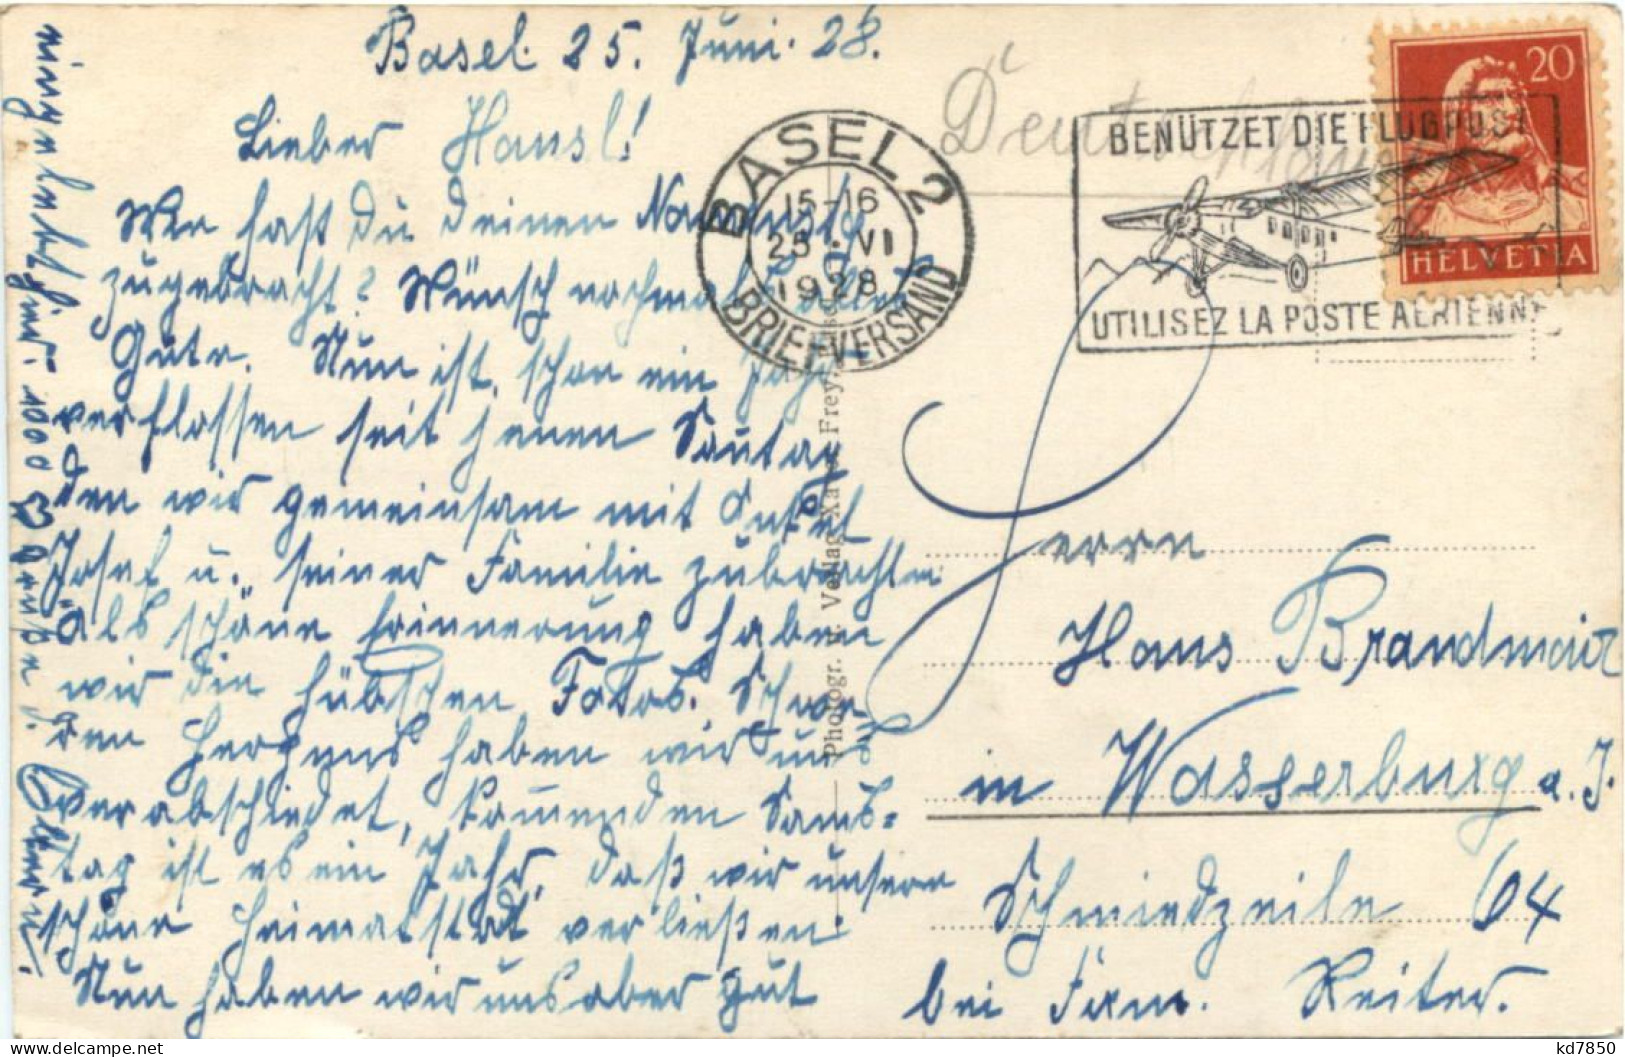 Basel 25. Juni. 28.
Lieber Hansl!
Wie hast du deinen Namenstg
zugebracht? Wünsch nochmals alles
Gute. Nun ist schon ein Jahr
verflossen seit jenen Sontag
den wir gemeinsam mit Onkel
Josef u. seiner Familie zubrachten
Als schöne Erinnerung haben
wir die hübschen Fotos. Schwe-
ren Herzens haben wir uns
verabschiedet, kommenden Sams=
tag ist es ein Jahr, daß wir unsere
schöne Heimatstadt verließen.
Nun haben wir uns aber gut
eingelebt hier. 1000 Grüße
Deutschland
BASEL 2
15-16
25.VI
1928
BRIEFVERSAND
BENÜTZET DIE FLUGPOST
UTILISEZ LA POSTE AERIENNE
20
HELVETIA
Photogr. u. Verlag Xaver Frey, Basel
Herrn
Hans Brandmair
in Wasserburg a. I.
Schmiedzeile 64
bei Fam. Reiter.
kd7850